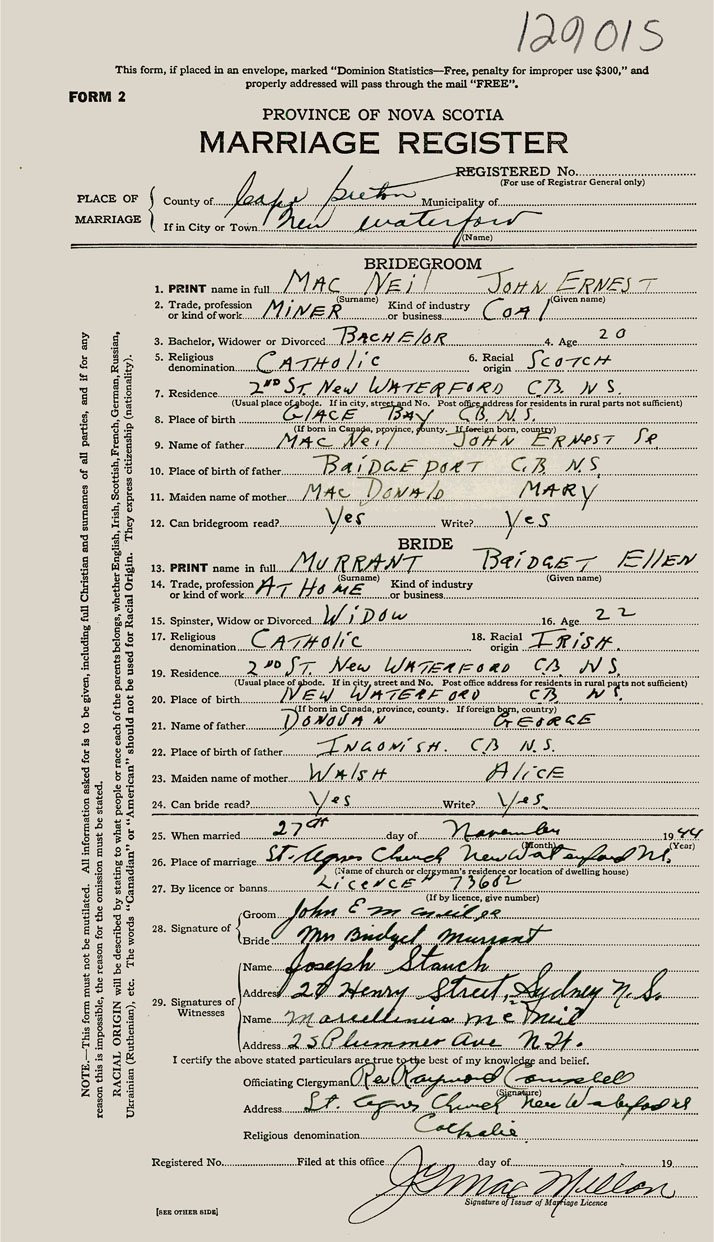 129015
This form, if placed in an envelope, marked "Dominion Statistics—Free, penalty for improper use $300," and
properly addressed will pass through the mail "FREE".
FORM 2
PROVINCE OF NOVA SCOTIA
MARRIAGE REGISTER
REGISTERED No.
(For use of Registrar General only)
PLACE OF MARRIAGE
County of Cape Breton Municipality of
If in City or Town New Waterford
(Name)
BRIDEGROOM
1. PRINT name in full MAC NEil JOHN ERNEST
(Surname) (Given name)
2. Trade, profession or kind of work MiNER Kind of industry or business COAl
3. Bachelor, Widower or Divorced BACHElOR 4. Age 20
5. Religious denomination CATHOlic 6. Racial origin SCOTCH
7. Residence 2ND ST. NEW WATERFORD C.B. N.S.
(Usual place of abode. If in city, street and No. Post office address for residents in rural parts not sufficient)
8. Place of birth GlACE BAY C.B. N.S.
(If born in Canada, province, county. If foreign born, country)
9. Name of father MAC NEil JOHN ERNEST SR
10. Place of birth of father BRiDGEPORT C.B. N.S.
11. Maiden name of mother MAC DONAlD MARY
12. Can bridegroom read? Yes Write? Yes
BRIDE
13. PRINT name in full MURRANT BRiDGET EllEN
(Surname) (Given name)
14. Trade, profession or kind of work AT HOME Kind of industry or business
15. Spinster, Widow or Divorced WiDOW 16. Age 22
17. Religious denomination CATHOlic 18. Racial origin IRISH.
19. Residence 2ND ST. NEW WATERFORD C.B. N.S.
(Usual place of abode. If in city, street and No. Post office address for residents in rural parts not sufficient)
20. Place of birth NEW WATERFORD C.B. N.S.
(If born in Canada, province, county. If foreign born, country)
21. Name of father DONOVAN GEORGE
22. Place of birth of father INGONiSH. C.B. N.S.
23. Maiden name of mother WAlSH AliCE
24. Can bride read? Yes Write? Yes.
25. When married 27th day of November 1944
(Month) (Year)
26. Place of marriage St. Agnes Church New Waterford N.S.
(Name of church or clergyman's residence or location of dwelling house)
27. By licence or banns LiCENCE 73602
(If by licence, give number)
28. Signature of
Groom John E McNeil
Bride Mrs Bridget Murrant
29. Signatures of Witnesses
Name Joseph Stauch
Address 20 Henry Street, Sydney N.S.
Name Marcellinus McNeil
Address 25 Plummer Ave N.W.
I certify the above stated particulars are true to the best of my knowledge and belief.
Officiating Clergyman Rev Raymond Campbell
(Signature)
Address St. Agnes Church New Waterford NS
Religious denomination Catholic
Registered No. Filed at this office day of 19
J G MacMillan
Signature of Issuer of Marriage Licence
[SEE OTHER SIDE]
NOTE.—This form must not be mutilated. All information asked for is to be given, including full Christian and surnames of all parties, and if for any
reason this is impossible, the reason for the omission must be stated.
RACIAL ORIGIN will be described by stating to what people or race each of the parents belongs, whether English, Irish, Scottish, French, German, Russian,
Ukrainian (Ruthenian), etc. The words "Canadian" or "American" should not be used for Racial Origin. They express citizenship (nationality).